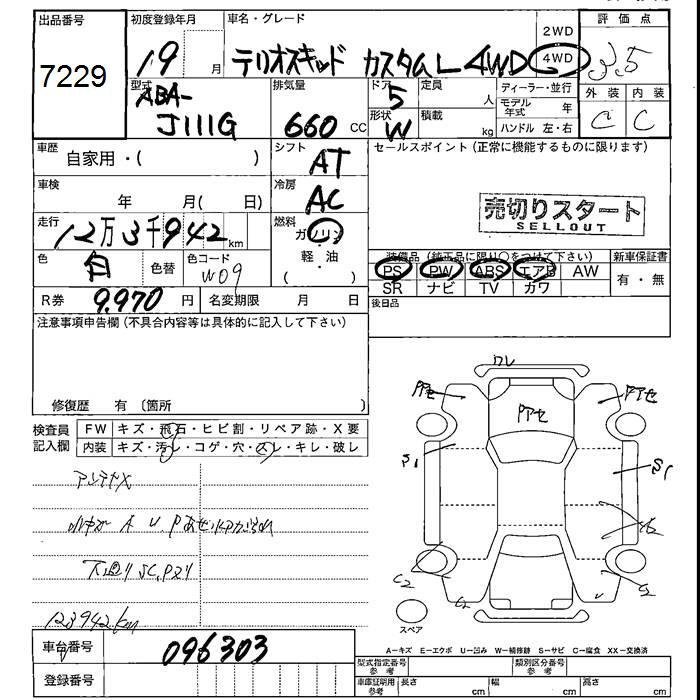 出品番号
7229
初度登録年月
19 月
車名・グレード
テリオスキッド カスタムL 4WD
2WD
4WD
評価点
3.5
型式
ABA-
J111G
排気量
660 CC
ドア
5
形状
W
定員
人
積載
kg
ディーラー・並行
モデル年式 年
ハンドル 左・右
外装
C
内装
C
車歴
自家用・( )
シフト
AT
セールスポイント(正常に機能するものに限ります)
売切りスタート
SELLOUT
車検
年 月( 日)
冷房
AC
走行
12万3千942km
燃料
ガソリン
軽・油
( )
色
白
色替
色コード
W09
装備品(純正品に限り○をつけて下さい)
PS PW ABS エアB AW
SR ナビ TV カワ
新車保証書
有・無
R券
9,970 円
名変期限 月 日
後日品
注意事項申告欄(不具合内容等は具体的に記入して下さい)
修復歴 有 〔箇所 〕
検査員
記入欄
FW
キズ・飛石・ヒビ割・リペア跡・X要
内装
キズ・汚し・コゲ・穴・スレ・キレ・破レ
アンテナX
下廻りSC,Pスリ
123942km
車台番号
096303
登録番号
ワレ
Pアセ
Pアセ
Pアセ
S1
S1
C2
C2
スペア
A=キズ E=エクボ U=凹み W=補修跡 S=サビ C=腐食 XX=交換済
型式指定番号
参考
類別区分番号
参考
車庫証明用
参考
長さ cm
幅 cm
高さ cm